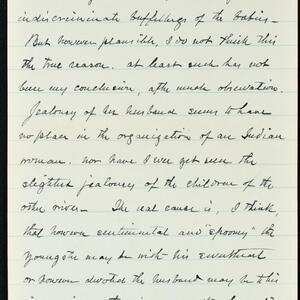 indiscriminate buffetings of the babies –
But however plausible, I do not think this
the true reason. at least such has not
been my conclusion, after much observation.
Jealousy of her husband seems to have
no place in the organization of an Indian
woman. nor have I ever yet seen the
slightest jealousy of the children of the
other wives – The real cause is, I think,
that however sentimental and "spoony" the
youngster may be with his sweetheart
or however devoted the husband may be to his